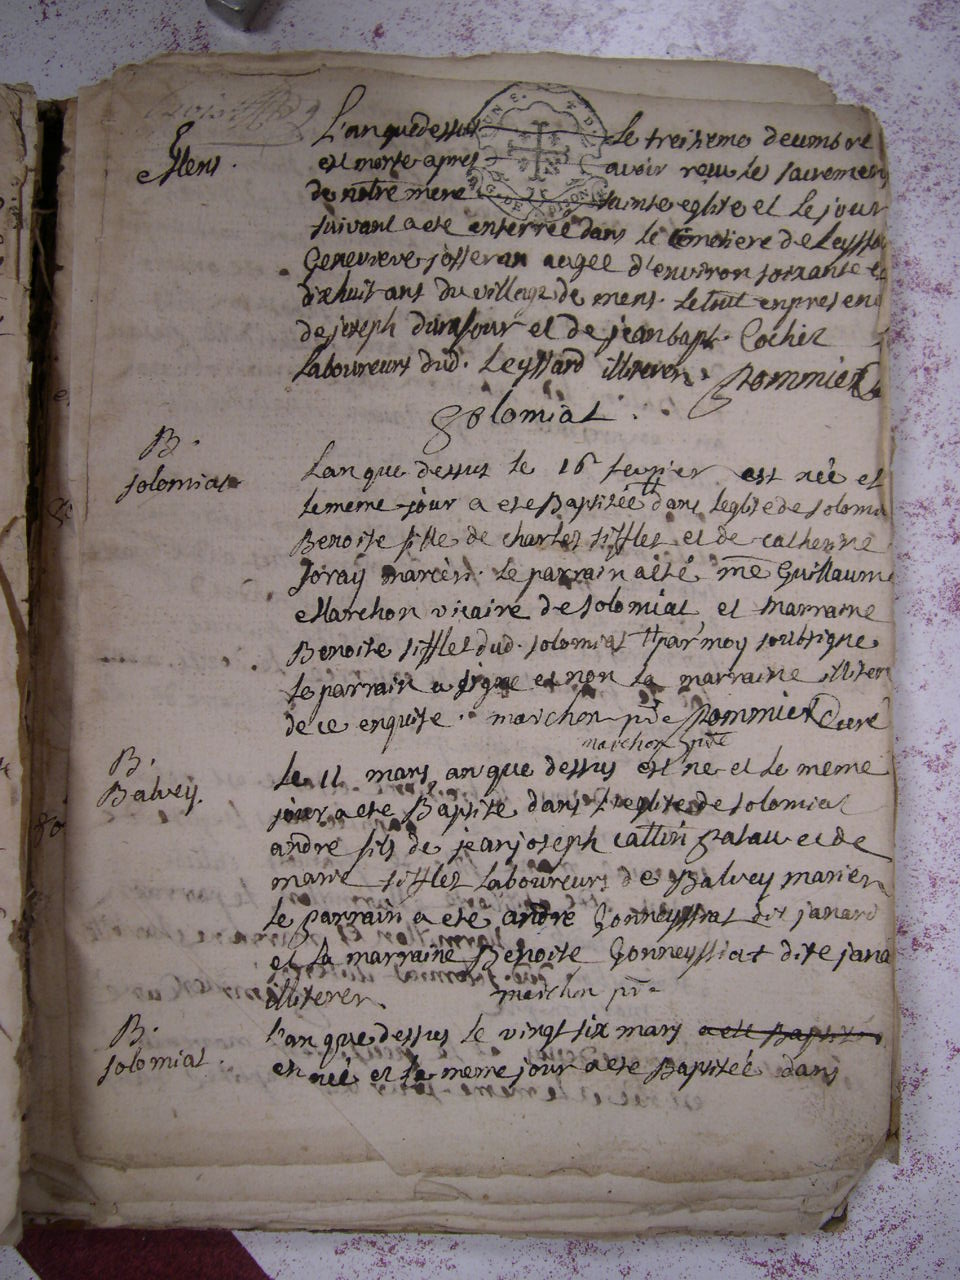 L'an que dessus le treisieme decembre
Mens.
est morte apres avoir reçu les sacremens
de notre mere sainte eglise et le jour
suivant a eté enterrée dans le cimetiere de Leyssa
Genevieve josseran augée d'environ soixante et
dixhuit ans du village de mens. le tout en presen
de joseph dufour et de jean bapt. Cochet
Laboureurs dud. Leyssard illiterer. Pommier
Solomiat.
B.
solomiat
L'an que dessus le 16 fevrier est née et
le meme jour a eté Baptisée dans l'eglise de soloma
Benoite fille de charles sifflet et de catherine
Joray mariès. le parrain a été me Guillaum
Marchon vicaire de solomiat et marraine
Benoite sifflet dud. solomiat # par moy soubsigne
le parrain a signe et non la marraine illiter
de ce enquise. marchon ptre Pommier Curé
marchon ptre
B.
Balvey.
Le 11 mars an que dessus est ne et le meme
jour a eté Baptisé dans l'eglise de solomiat
andré fils de jean joseph cattin galau et de
marie sifflet Laboureurs de Balvey marier
le parrain a eté andré Gonneyssiat dit janard
et la marraine Benoite Gonneyssiat dite jana
illiterer. marchon ptre
B.
solomiat.
l'an que dessus le vingt six mars a eté Baptisé
est née et le meme jour a eté Baptisée dans